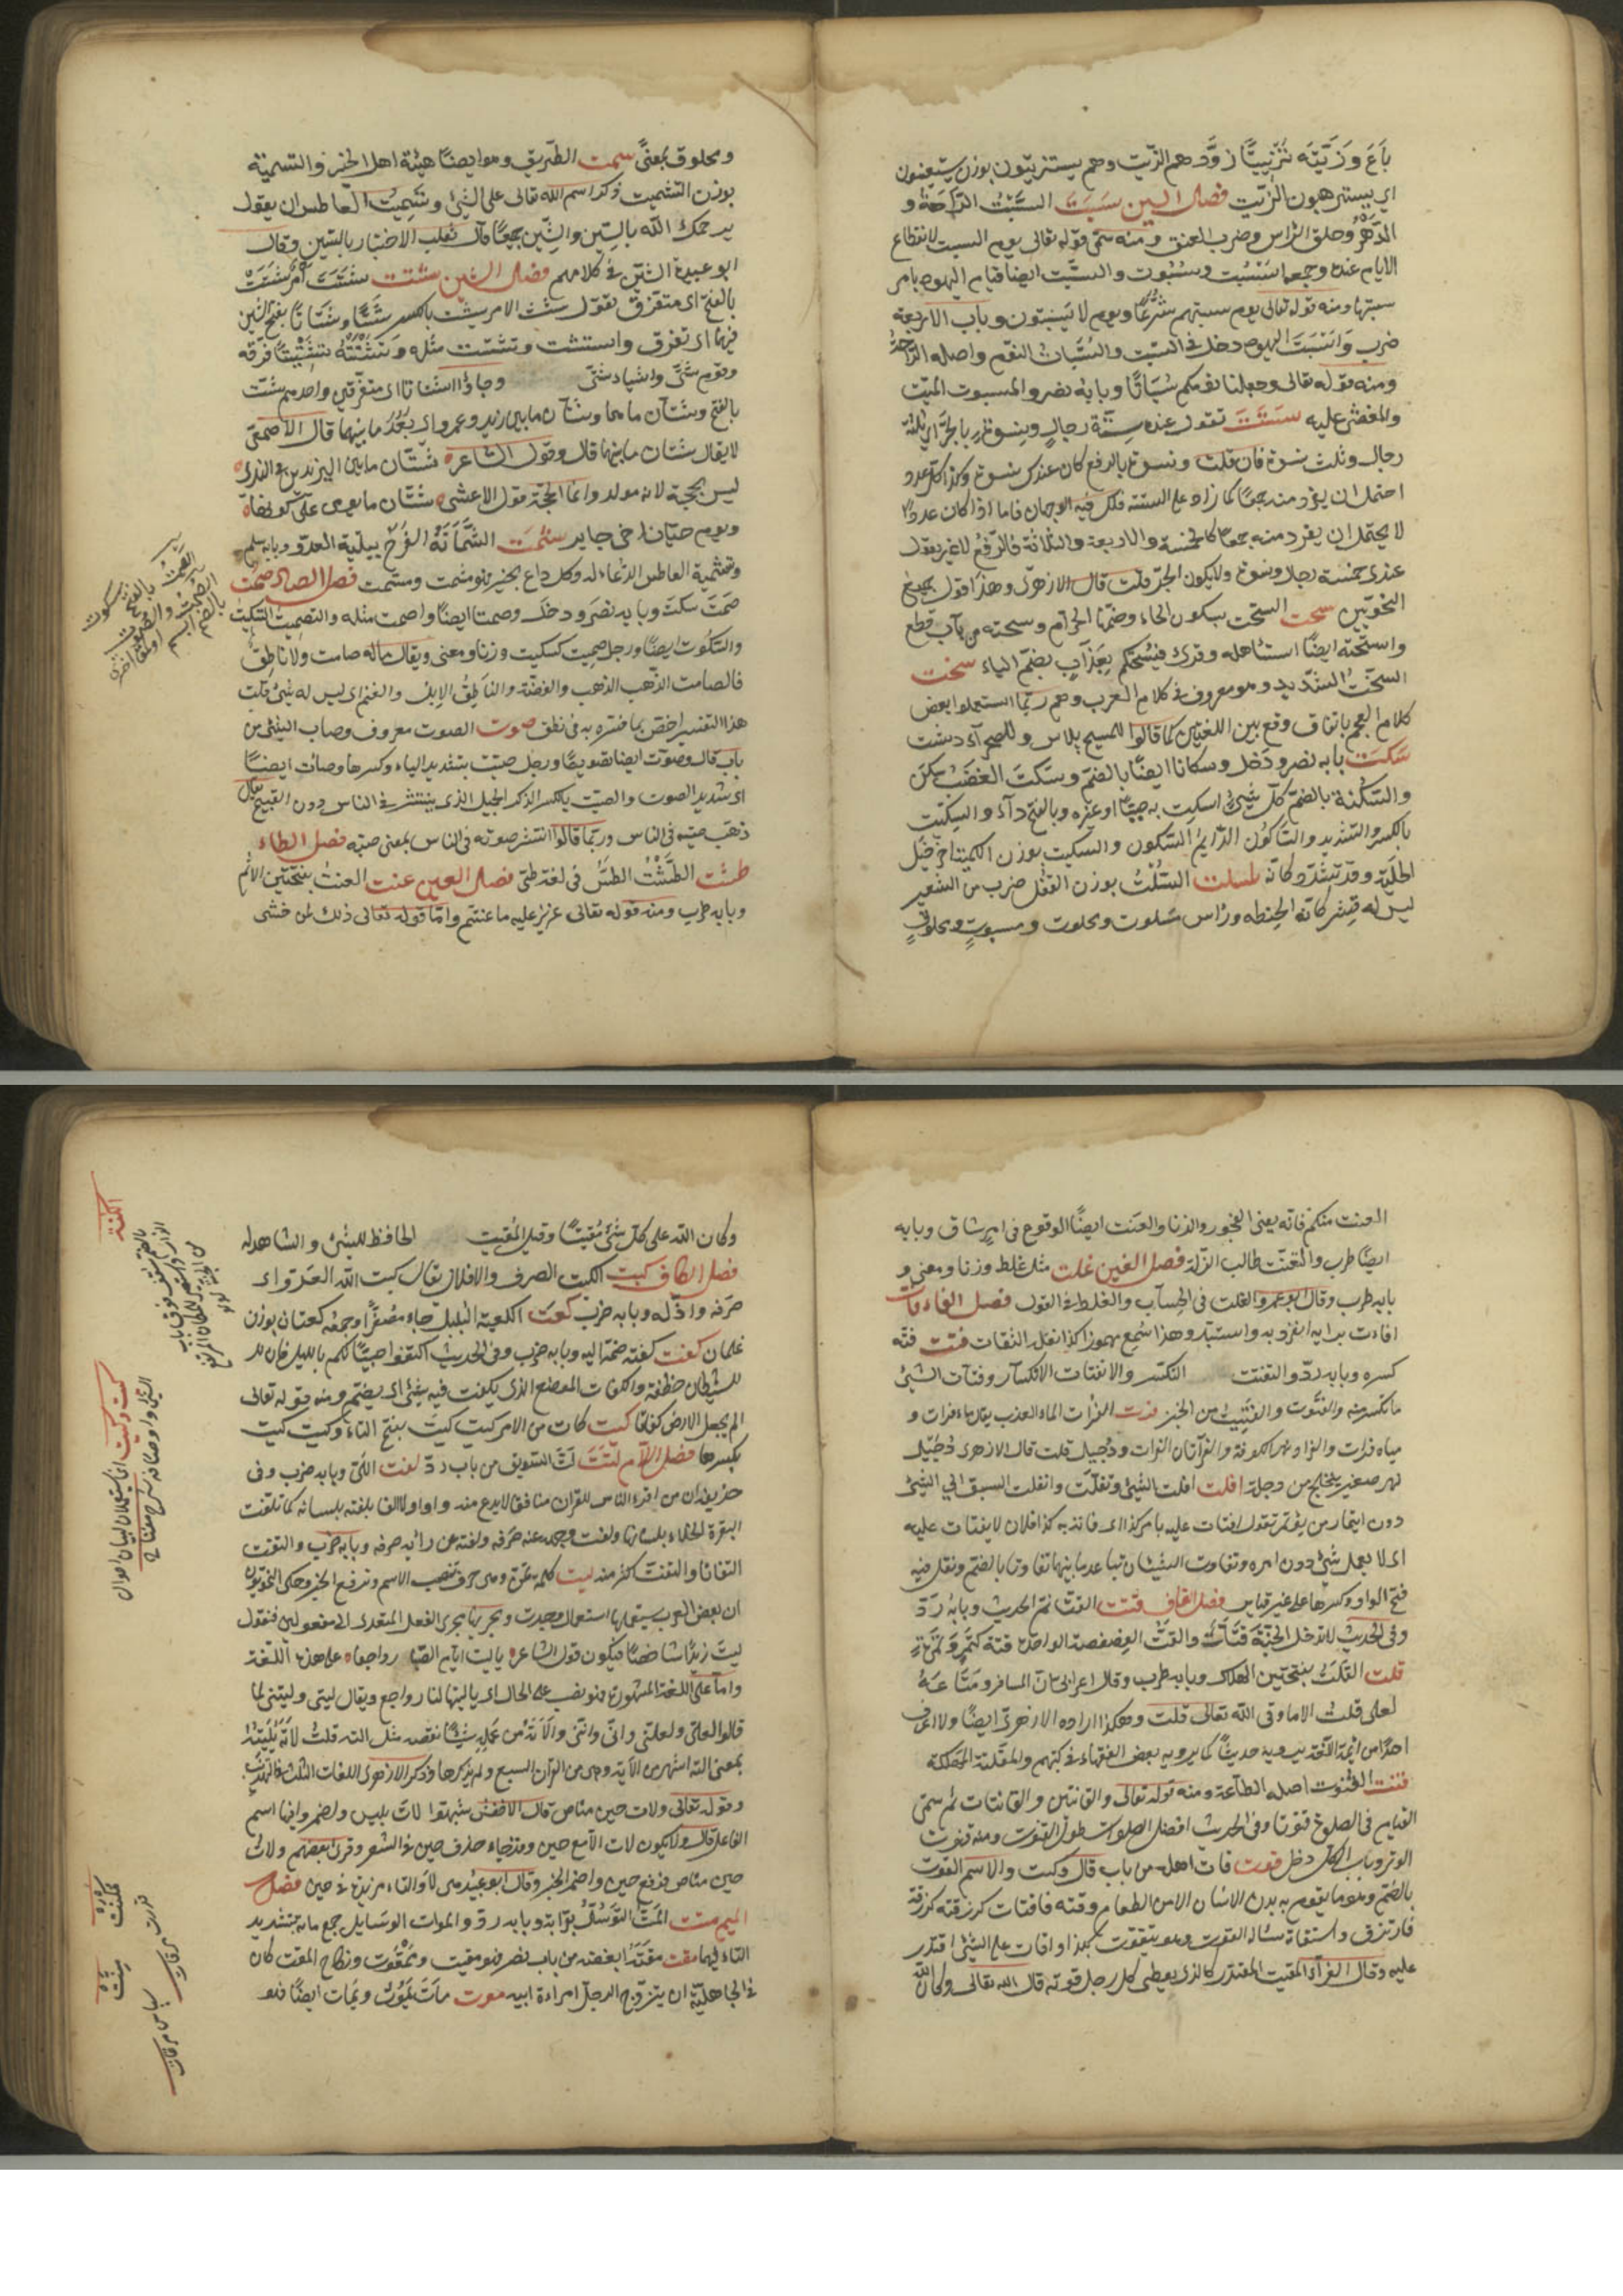 باع وزيته تزييتا زودهم الزيت وهم يستزيتون بوزن يستعينون
اي يستوهبون الزيت فصل السين سبت السبت الراحة و
الدهر وحلق الراس وضرب العنق ومنه سمى قوله تعالى يوم السبت لانقطاع
الايام عنده وجمعه اسبت وسبوت والسبت ايضا قيام اليهود بامر
سبتها ومنه قوله تعالى يوم سبتهم شرعا ويوم لا يسبتون وباب الاربعة
ضرب واسبت اليهود دخل في السبت والسبات النوم واصله الراحة
ومنه قوله تعالى وجعلنا نومكم سباتا وبابه نصر والمسبوت الميت
والمغشى عليه ستت تقول عنده ستة رجال ونسوة بالجر اي ثلثة
رجال وثلث نسوة فان قلت ونسوة بالرفع كان عندك نسوة وكذا كل عدد
احتمل ان يفرد منه جمعا كما زاد على الستة فلك فيه الوجهان فاما اذا كان عددا
لا يحتمل ان يفرد منه جمعا كالخمسة والاربعة والثلاثة فالرفع لا غير تقول
عندي خمسة رجال ونسوة ولا يكون الجر قلت قال الازهرى وهذا قول جميع
النحويين سحت السحت بسكون الحاء وضمها الحرام وسحته من باب قطع
واسحته ايضا استاصله وقرئ فيسحتكم بعذاب بضم الياء سخت
السخت الشديد وهو معروف في كلام العرب وهم ربما استعملوا بعض
كلام العجم باتفاق وقع بين اللغتين كما قالوا للمسح بلاس وللصحراء دشت
سكت بابه نصر ودخل وسكاتا ايضا بالضم وسكت الغضب سكن
والسكتة بالضم كل شيئ اسكت به صبيا او غيره وبالفتح داء والسكيت
بالكسر والتشديد والساكوت الدايم السكوت والسكيت بوزن الكميت آخر خيل
الحلبة وقد تشدد كافه سلت السلت بوزن القفل ضرب من الشعير
ليس له قشر كانه الحنطة وراس مسلوت ومحلوت ومسبوت ومحلوق
ومحلوق بمعنى سمت الطريق وهو ايضا هيئة اهل الخير والتسمية
بوزن التشميت ذكر اسم الله تعالى على الشيئ وتسميت العاطس ان يقول
يرحمك الله بالسين والشين جميعا قال ثعلب الاختيار بالسين وقال
ابو عبيدة الشين في كلامهم فصل الشين شتت شتت امر شتت
بالفتح اى متفرق تقول شت الامر يشت بالكسر شتا وشتاتا بفتح الشين
فيهما اى تفرق واستشت وتشتت مثله وشتته تشتيتا فرقه
وقوم شتى واشياء شتى وجاؤا اشتاتا اى متفرقين واحدهم شت
بالفتح وشتان ما هما وشتان ما بين زيد وعمرو اى بعد ما بينهما قال الاصمعى
لا يقال شتان ما بينهما قال وقول الشاعر شتان ما بين اليزيدين في الندى
ليس بحجة لانه مولد وانما الحجة قول الاعشى شتان ما يومى على كورها
ويوم حيان اخى جابر شمت الشماتة الفرح ببلية العدو وبابه سلم
وتشميت العاطس الدعاء له وكل داع بخير فهو مشمت ومسمت فصل الصاد صمت
صمت سكت وبابه نصر ودخل وصمتا ايضا واصمت مثله والتصميت التسكيت
والسكوت ايضا ورجل صميت كسكيت وزنا ومعنى ويقال ماله صامت ولا ناطق
فالصامت الذهب والفضة والناطق الابل والغنم اى ليس له شيئ قلت
هذا التفسير اخص بما فسره به في نطق صوت الصوت معروف وصات الشيئ من
باب قال وصوت ايضا تصويتا ورجل صيت بتشديد الياء وكسرها وصات ايضا
اى شديد الصوت والصيت بالكسر الذكر الجميل الذى ينتشر في الناس دون القبيح يقال
ذهب صيته في الناس وربما قالوا انتشر صوته في الناس بمعنى صيته فصل الطاء
طست الطست الطس في لغة طى فصل العين عنت العنت بفتحتين الاثم
وبابه طرب ومنه قوله تعالى عزيز عليه ما عنتم واما قوله تعالى ذلك لمن خشى
العنت منكم فانه يعنى الفجور والزنا والعنت ايضا الوقوع في امر شاق وبابه
ايضا طرب والمتعنت طالب الزلة فصل الغين غلت مثل غلط وزنا ومعنى و
بابه طرب وقال ابو عمرو الغلت في الحساب والغلط في القول فصل الفاء فات
افتات برايه انفرد به واستبد وهذا سمع مهموزا كذا نقل الثقات فتت فته
كسره وبابه رد والتفتت التكسر والانفتات الانكسار وفتات الشيئ
ما تكسر منه والفتوت والفتيت من الخبز فرت الفرات الماء العذب يقال ماء فرات و
مياه فرات والفرات نهر الكوفة والفراتان الفرات ودجيل قلت قال الازهرى دجيل
نهر صغير يتخلج من دجلة افلت افلت الشيئ وتفلت وانفلت السبق الى الشيئ
دون ايتمار من يؤتمر تقول افتات عليه بامر كذا اى فاته به كذا فلان لا يفتات عليه
اى لا يعمل شيئ دون امره وتفاوت الشيئان تباعد ما بينهما تفاوتا بالضم ونقل فيه
فتح الواو وكسرها على غير قياس فصل القاف قتت القت نم الحديث وبابه رد
وفي الحديث لا يدخل الجنة قتات والقت الفصفصة الواحدة قتة كتمر وتمرة
قلت القلت بفتحتين الهلاك وبابه طرب وقال اعرابى ان المسافر ومتاعه
لعلى قلت الا ما وقى الله تعالى قلت وهكذا اراده الازهرى ايضا ولا اعرف
احدا من ائمة اللغة يرويه حديثا كما يرويه بعض الفقهاء في كتبهم والمقلتة المهلكة
قنت القنوت اصله الطاعة ومنه قوله تعالى والقانتين والقانتات ثم سمى
القيام في الصلوة قنوتا وفي الحديث افضل الصلوات طول القنوت ومنه قنوت
الوتر وباب الكل دخل قوت قات اهله من باب قال وكتب والاسم القوت
بالضم وهو ما يقوم به بدن الانسان الا من الطعام وقته فاقتات كرزقته كرزقة
فارتزق واستقاة ساله القوت وهو يتقوت بكذا واقات على الشيئ اقتدر
عليه وقال الفراء المقيت المقتدر كالذى يعطى كل رجل قوته قال الله تعالى وكان الله
وكان الله على كل شيئ مقيتا وقيل المقيت الحافظ للشيئ والشاهد له
فصل الكاف كبت الكبت الصرف والاذلال يقال كبت الله العدو اى
صرفه واذله وبابه ضرب كعت الكعيت البلبل جاء مصغرا وجمعه كعتان بوزن
غلمان كفت كفته ضمه اليه وبابه ضرب وفي الحديث اكفتوا صبيانكم بالليل فان
للشيطان خطفة والكفات الموضع الذى يكفت فيه شيئ اى يضم ومنه قوله تعالى
الم نجعل الارض كفاتا كيت كان من الامر كيت كيت بفتح التاء وكيت كيت
بكسرها فصل اللام لتت لت السويق من باب رد لفت اللى وبابه ضرب وفى
حذيفة ان من اقرء الناس للقران منافقا لا يدع منه واوا ولا الفا يلفته بلسانه كما تلفت
البقرة الخلاء بلسانها ولفت وجهه عنه صرفه ولفته عن رائيه صرفه وبابه ضرب والتفت
التفاتا والتلفت اكثر منه ليت كلمة تمن وهى حرف تنصب الاسم وترفع الخبر وحكى النحويون
ان بعض العرب يستعملها استعمال وجدت ويجريها مجرى الفعل المتعدى الى مفعولين فيقول
ليت زيدا شاخصا فيكون قول الشاعر يا ليت ايام الصبا رواجعا على هذه اللغة
واما على اللغة المشهورة فنصب على الحال اى يا ليتها لنا رواجع ويقال ليتى وليتنى كما
قالوا لعلى ولعلنى وانى واننى والاته من عمله شيئا نقصه مثل الته قلت لاته يليته
بمعنى الته اشهر من الايته وهى من القران السبع ولم يذكرها وذكر الازهرى اللغات الثلث في التهذيب
وقوله تعالى ولات حين مناص قال الاخفش شبهوا لات بليس واضمروا فيها اسم
الفاعل قال ولا يكون لات الا مع حين وقد جاء حذف حين في الشعر وقرئ بعضهم ولات
حين مناص فرفع حين واضمر الخبر وقال ابو عبيد هى لا والتاء مزيدة في حين فصل
الميم متت المت التوسل بقرابة وبابه رد والموات الوسايل جمع ماتة بتشديد
التاء فيهما مقت مقته ابغضه من باب نصر فهو مقيت وممقوت ونكاح المقت كان
في الجاهلية ان يتزوج الرجل امراءة ابيه موت مات يموت ويمات ايضا فهو